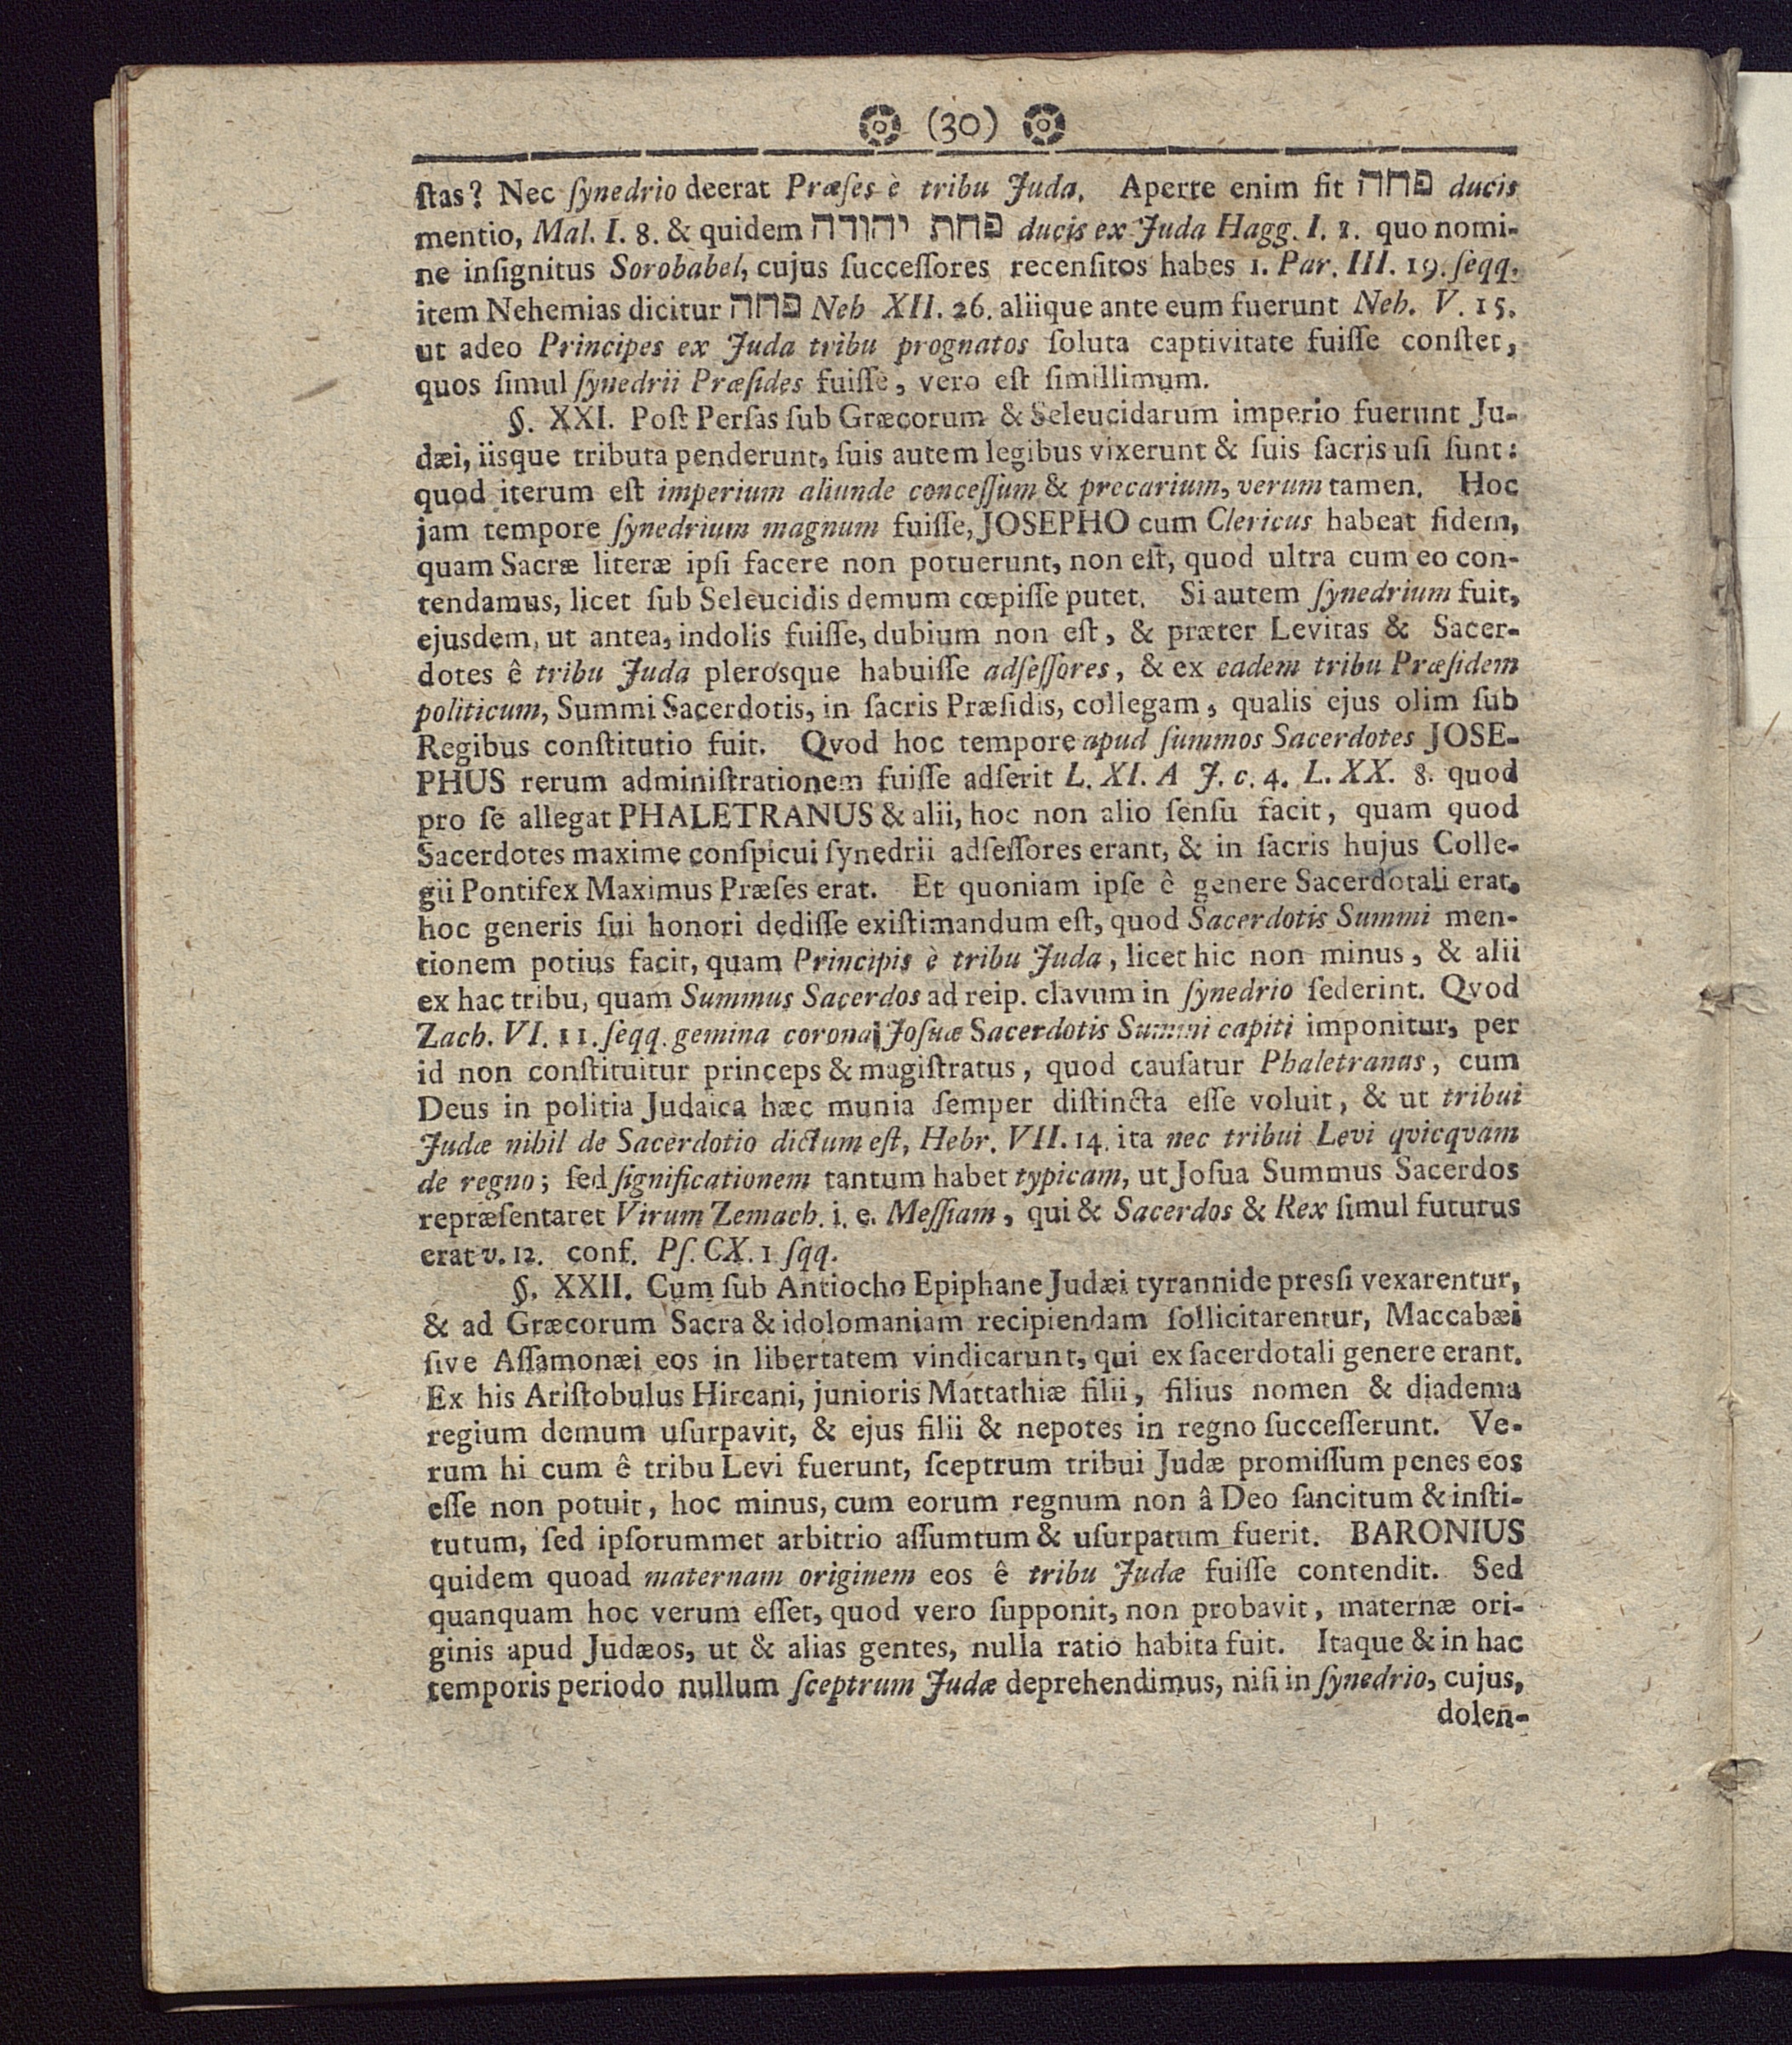 (30)
ſtas? Nec ſynedrio deerat Præſes è tribu Juda. Aperte enim fit פחה ducis
mentio, Mal. I. 8. & quidem פחת יהודה ducis ex Juda Hagg. I. 1. quo nomi-
ne inſignitus Sorobabel, cujus ſucceſſores recenſitos habes 1. Par. III. 19. ſeqq.
item Nehemias dicitur פחה Neh XII. 26. aliique ante eum fuerunt Neh. V. 15.
ut adeo Principes ex Juda tribu prognatos ſoluta captivitate fuiſſe conſtet,
quos ſimul ſynedrii Præſides fuiſſe, vero eſt ſimillimum.
§. XXI. Poſt Perſas ſub Græcorum & Seleucidarum imperio fuerunt Ju-
dæi, iisque tributa penderunt, ſuis autem legibus vixerunt & ſuis ſacris uſi ſunt:
quod iterum eſt imperium aliunde conceſſum & precarium, verum tamen. Hoc
jam tempore ſynedrium magnum fuiſſe, JOSEPHO cum Clericus habeat fidem,
quam Sacræ literæ ipſi facere non potuerunt, non eſt, quod ultra cum eo con-
tendamus, licet ſub Seleucidis demum cœpiſſe putet. Si autem ſynedrium fuit,
ejusdem, ut antea, indolis fuiſſe, dubium non eſt, & præter Levitas & Sacer-
dotes ê tribu Juda plerosque habuiſſe adſeſſores, & ex eadem tribu Præſidem
politicum, Summi Sacerdotis, in ſacris Præſidis, collegam, qualis ejus olim ſub
Regibus conſtitutio fuit. Qvod hoc tempore apud ſummos Sacerdotes JOSE-
PHUS rerum adminiſtrationem fuiſſe adſerit L. XI. A J. c. 4. L. XX. 8. quod
pro ſe allegat PHALETRANUS & alii, hoc non alio ſenſu facit, quam quod
Sacerdotes maxime conſpicui ſynedrii adſeſſores erant, & in ſacris hujus Colle-
gii Pontifex Maximus Præſes erat. Et quoniam ipſe ê genere Sacerdotali erat,
hoc generis ſui honori dediſſe exiſtimandum eſt, quod Sacerdotis Summi men-
tionem potius facit, quam Principis è tribu Juda, licet hic non minus, & alii
ex hac tribu, quam Summus Sacerdos ad reip. clavum in ſynedrio ſederint. Qvod
Zach. VI. 11. ſeqq. gemina corona Joſuæ Sacerdotis Summi capiti imponitur, per
id non conſtituitur princeps & magiſtratus, quod cauſatur Phaletranus, cum
Deus in politia Judaica hæc munia ſemper diſtincta eſſe voluit, & ut tribui
Judæ nihil de Sacerdotio dictum eſt, Hebr. VII. 14. ita nec tribui Levi qvicqvam
de regno; ſed ſignificationem tantum habet typicam, ut Joſua Summus Sacerdos
repræſentaret Virum Zemach. i. e. Meſſiam, qui & Sacerdos & Rex ſimul futurus
erat v. 12. conf. Pſ. CX. 1 ſqq.
§. XXII. Cum ſub Antiocho Epiphane Judæi tyrannide presſi vexarentur,
& ad Græcorum Sacra & idolomaniam recipiendam ſollicitarentur, Maccabæi
ſive Aſſamonæi eos in libertatem vindicarunt, qui ex ſacerdotali genere erant.
Ex his Ariſtobulus Hircani, junioris Mattathiæ filii, filius nomen & diadema
regium demum uſurpavit, & ejus filii & nepotes in regno ſucceſſerunt. Ve-
rum hi cum ê tribu Levi fuerunt, ſceptrum tribui Judæ promiſſum penes eos
eſſe non potuit, hoc minus, cum eorum regnum non â Deo ſancitum & inſti-
tutum, ſed ipſorummet arbitrio aſſumtum & uſurpatum fuerit. BARONIUS
quidem quoad maternam originem eos ê tribu Judæ fuiſſe contendit. Sed
quanquam hoc verum eſſet, quod vero ſupponit, non probavit, maternæ ori-
ginis apud Judæos, ut & alias gentes, nulla ratio habita fuit. Itaque & in hac
temporis periodo nullum ſceptrum Judæ deprehendimus, niſi in ſynedrio, cujus,
dolen-